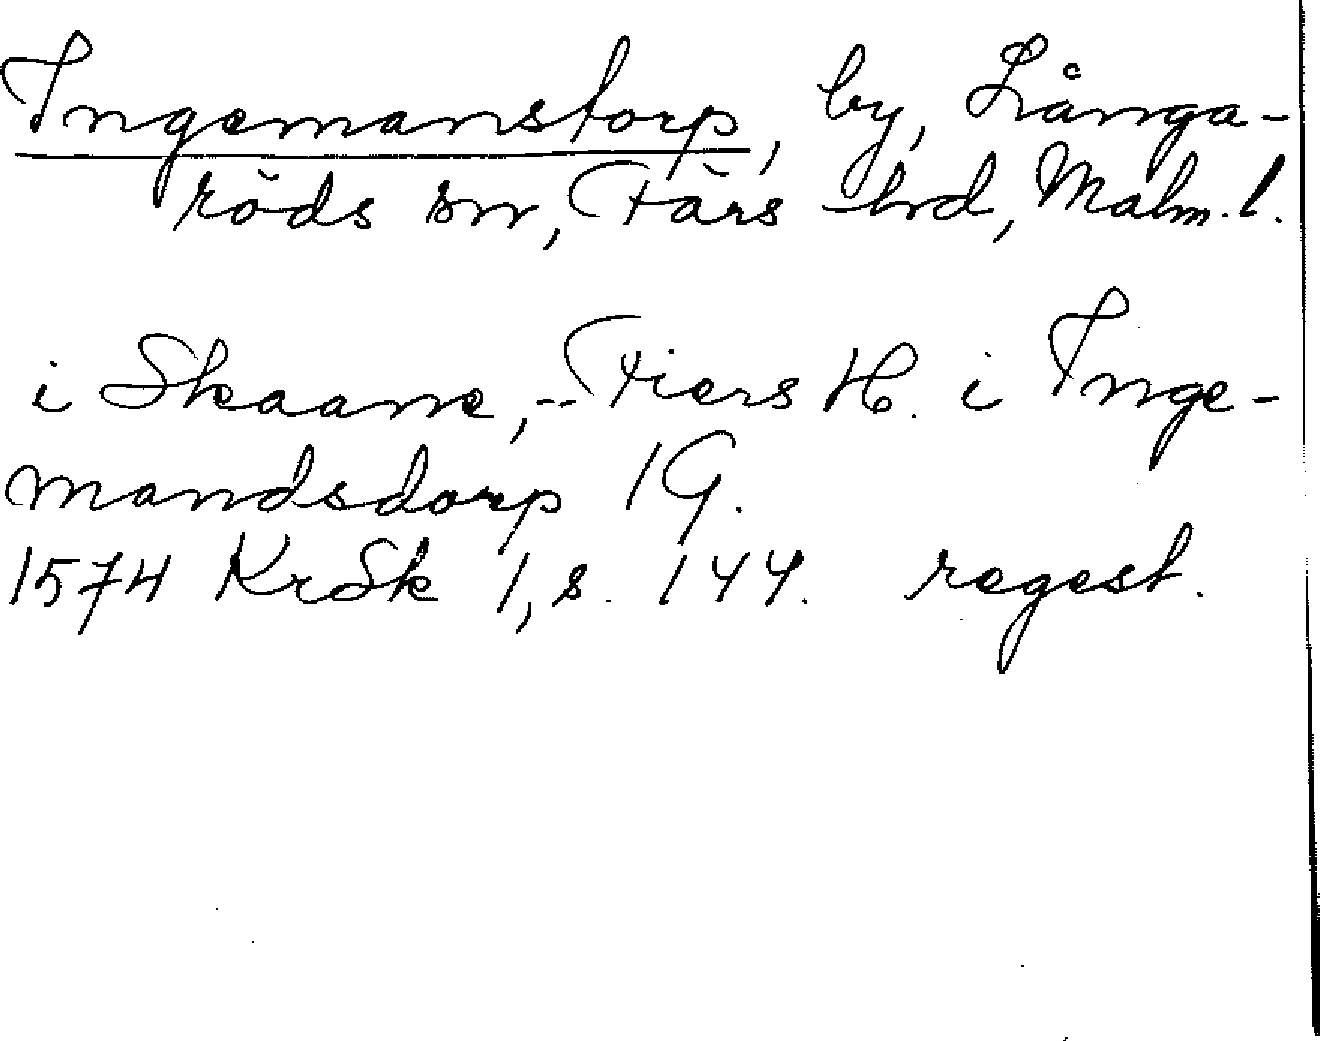 Ingemanstorp, by, Långa-
röds sn, Färs hrd, Malm. l.
i Skaane, -- Fiers H. i Inge-
mandsdorp 1 G.
1574 KrSk 1, s. 144. regest.